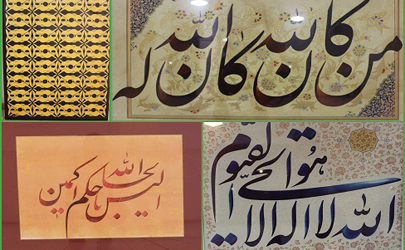 من كان لله كان الله له
اليس الله باحكم الحاكمين
الله لا اله الا هو الحي القيوم